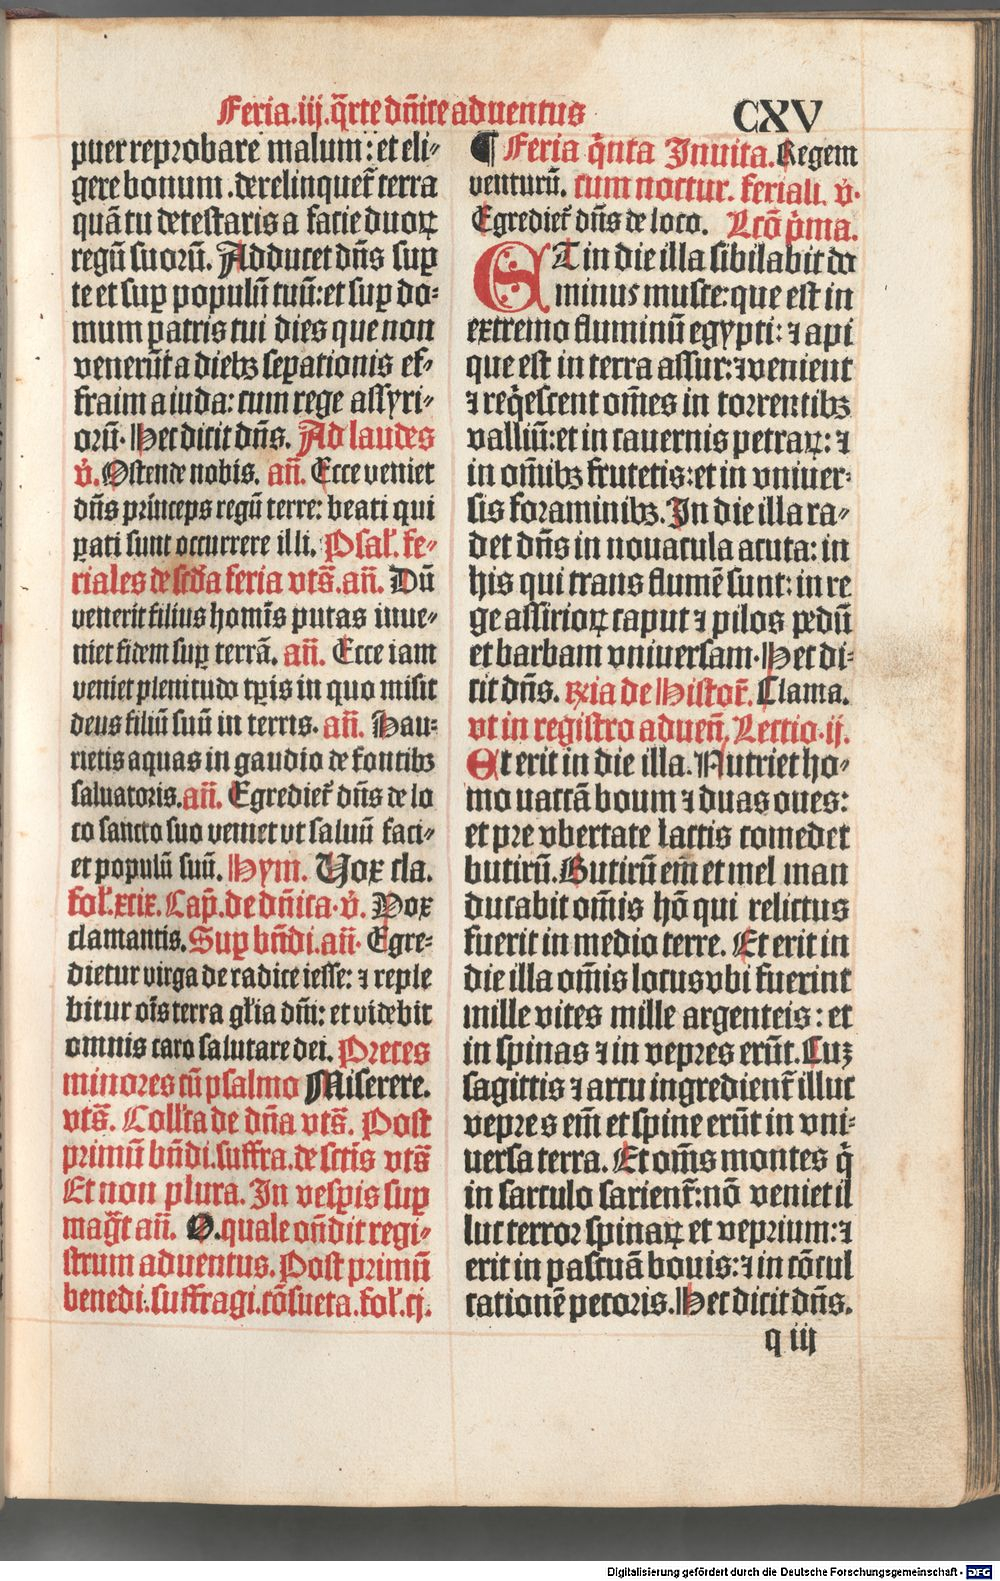 Feria.iij.q̄rte dn̄ice aduentus
CXV
puer reprobare malum: et eli-
gere bonum. derelinquet̄ terra
quā tu detestaris a facie duoꝝ
regū suoꝝ. Adducet dn̄s suꝑ
te et suꝑ populū tuū: et suꝑ do-
mum patris tui dies que non
venerūt a diebꝫ seꝑationis ef-
fraim a iuda: cum rege assyri-
orū. Hec dicit dn̄s. Ad laudes
v̊. Ostende nobis. an̄. Ecce veniet
dn̄s princeps regū terre: beati qui
ꝑati sunt occurrere illi. Psal'. fe-
riales de scd'a feria vts̄. an̄. Dū
venerit filius homīs putas inue-
niet fidem suꝑ terrā. an̄. Ecce iam
veniet plenitudo tꝑis in quo misit
deus filiū suū in terris. an̄. Hau-
rietis aquas in gaudio de fontibꝫ
saluatoris. an̄. Egrediet̄ dn̄s de lo
co sancto suo veniet vt saluū faci-
et populū suū. Hym. Vox cla.
fol'.xcix. Cap̄. de dn̄ica. v̊. Vox
clamantis. Suꝑ bn̄di. an̄. Egre-
dietur virga de radice iesse: ⁊ reple
bitur oīs terra gl'ia dn̄i: et videbit
omnis caro salutare dei. Preces
minores cū psalmo Miserere.
vts̄. Coll'ca de dn̄a vts̄. Post
primū bn̄di. suffra. de sct̄is vts̄
Et non plura. In vesꝑis suꝑ
mag̃t an̄. O. quale on̄dit regi-
strum aduentus. Post primū
benedi. suffragi. cōsueta. fol'. cj.
¶ Feria q̇nta Inuita. Regem
venturū. cum noctur. feriali. v̊.
Egrediet̄ dn̄s de loco. Lc̄o p̊ma.
ET in die illa sibilabit do
minus musce: que est in
extremo fluminū egypti: ⁊ api
que est in terra assur: ⁊ venient
⁊ req̇escent om̄es in torrentibꝫ
valliū: et in cauernis petraꝝ: ⁊
in om̄ibꝫ frutetis: et in vniuer-
sis foraminibꝫ. In die illa ra-
det dn̄s in nouacula acuta: in
his qui trans flumē sunt: in re
ge assirioꝝ caput ⁊ pilos pedū
et barbam vniuersam. Hec di-
cit dn̄s. R̃ia de Histor̄. Clama.
vt in registro aduen̄. Lectio. ij.
Et erit in die illa. Nutriet ho-
mo uaccā boum ⁊ duas oues:
et pre vbertate lactis comedet
butirū. Butirū em̄ et mel man
ducabit om̄is hō qui relictus
fuerit in medio terre. Et erit in
die illa om̄is locus vbi fuerint
mille vites mille argenteis: et
in spinas ⁊ in vepres erūt. Cuꝫ
sagittis ⁊ arcu ingredient̄ illuc
vepres em̄ et spine erūt in vni-
uersa terra. Et om̄s montes q̇
in sarculo sarient̄: nō veniet il
luc terror spinaꝝ et veprium: ⁊
erit in pascuā bouis: ⁊ in cōcul
cationē pecoris. Hec dicit dn̄s.
q iij
Digitalisierung gefördert durch die Deutsche Forschungsgemeinschaft - DFG